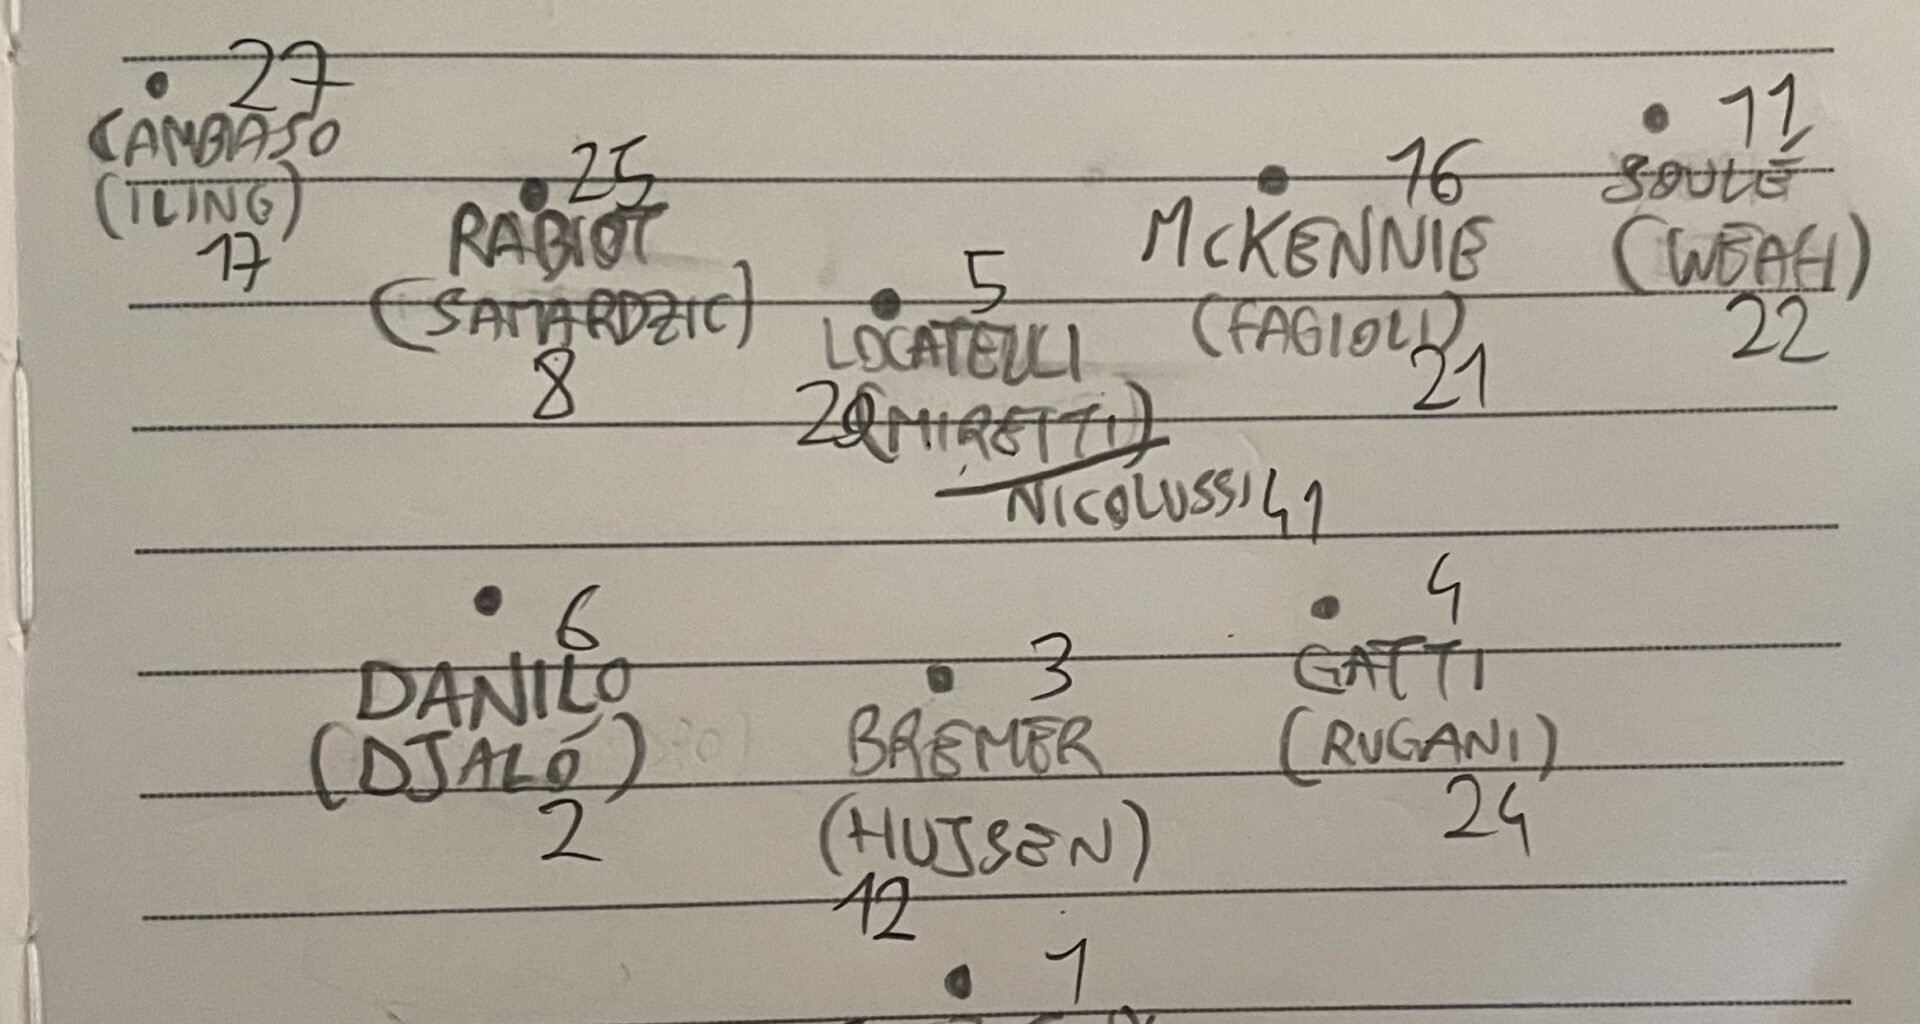 27
CAMBIASO
(ILING)
17
25
RABIOT
(SAMARDZIC)
8
5
LOCATELLI
20 (MIRETTI)
NICOLUSSI 41
16
McKENNIE
(FAGIOLI)
21
11
SOULÉ
(WEAH)
22
6
DANILO
(DJALÓ)
2
3
BREMER
(HUJSEN)
12
4
GATTI
(RUGANI)
24
1